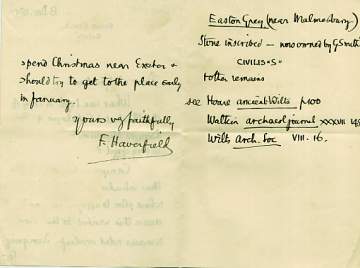 spend Christmas near Exeter &
should try to get to the place early
in January.
Yours very faithfully
F. Haverfield
Easton Grey (near Malmesbury)
Stone inscribed – now owned by G Smith
CIVILIS "S"
& other remains
see Hoare ancient Wilts p100
Watkin archaeol journal XXXVII
Wilts Arch. Soc VIII - 16.